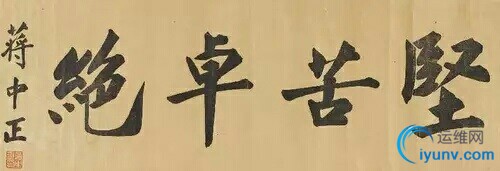 堅苦卓絕
蔣中正
运维网
iyunv.com